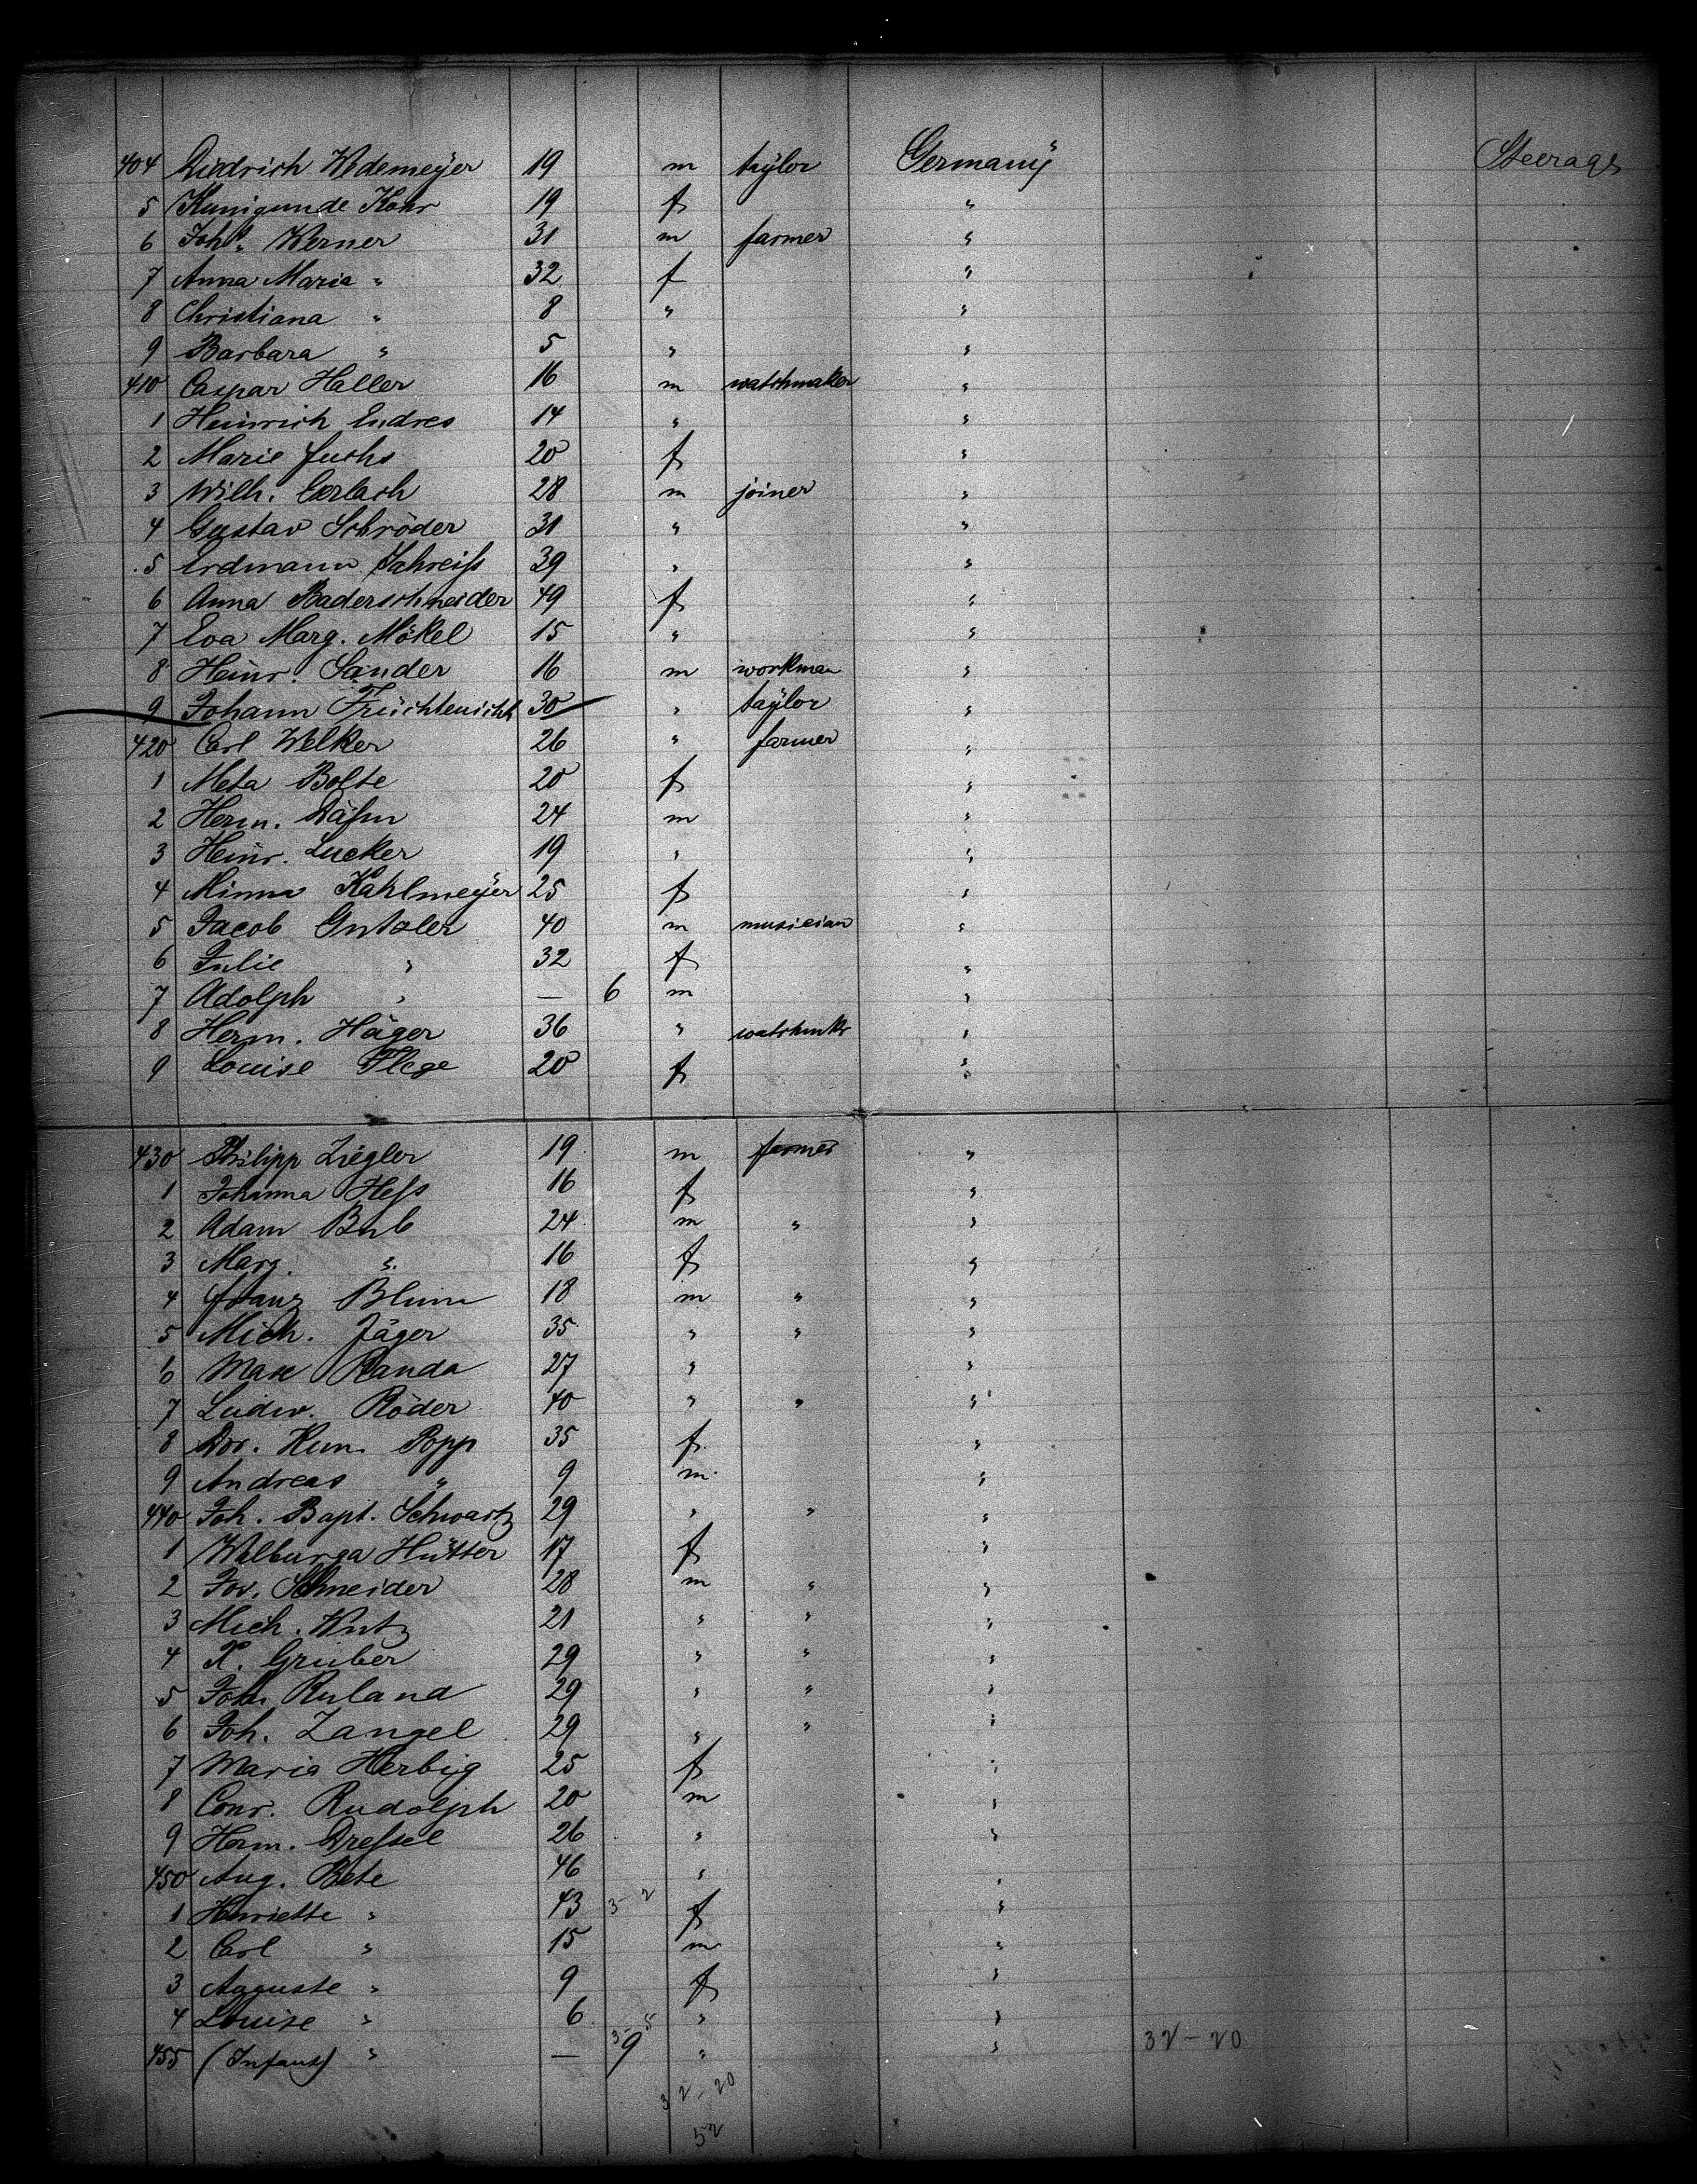 404 Diedrich Wedemeyer 19 m taylor Germany Steerage
5 Kunigunde Kohr 19 f "
6 Joh. Werner 31 m farmer "
7 Anna Maria " 32 f "
8 Christiana " 8 " "
9 Barbara " 5 " "
410 Caspar Haller 16 m watchmaker "
1 Heinrich Endres 14 " "
2 Marie Fuchs 20 f "
3 Wilh. Gerlach 28 m joiner "
4 Gustav Schröder 31 " "
5 Erdmann 39 " "
6 Anna Baderschneider 49 f "
7 Eva Marg. Mökel 15 " "
8 Heinr. Sander 16 m workman "
9 Johann Früchtenicht 30 " taylor "
420 Carl Welker 26 " farmer "
1 Meta Bolte 20 f "
2 Herm. 24 m "
3 Heinr. Lucker 19 " "
4 Minna Kahlmeyer 25 f "
5 Jacob Gutzler 40 m musician "
6 Julie " 32 f "
7 Adolph " — 6 m "
8 Herm. Häger 36 " watchmkr "
9 Louise Flege 20 f "
430 Philipp Ziegler 19 m farmer "
1 Johanna Heſs 16 f "
2 Adam Bub 24 m " "
3 Marg. " 16 f "
4 Franz Blum 18 m " "
5 Mich. Jäger 35 " " "
6 Max Randa 27 " "
7 Ludw. Röder 40 " " "
8 Dor. Kun. Popp 35 f "
9 Andreas " 9 m "
440 Joh. Bapt. Schwartz 29 " " "
1 Walburga Hütter 17 f "
2 Schneider 28 m " "
3 Mich. Wutz 21 " " "
4 X. Gruber 29 " " "
5 Joh. Ruland 29 " " "
6 Joh. Zangel 29 " " "
7 Maria Herbig 25 f "
8 Conr. Rudolph 20 m "
9 Herm. Dreſsel 26 " "
450 Aug. Bete 46 " "
1 Henriette " 43 3-2 f "
2 Carl " 15 m "
3 Auguste " 9 f "
4 Louise " 6 " "
455 (Infant) " — 9 " " 32-20
32-20
52